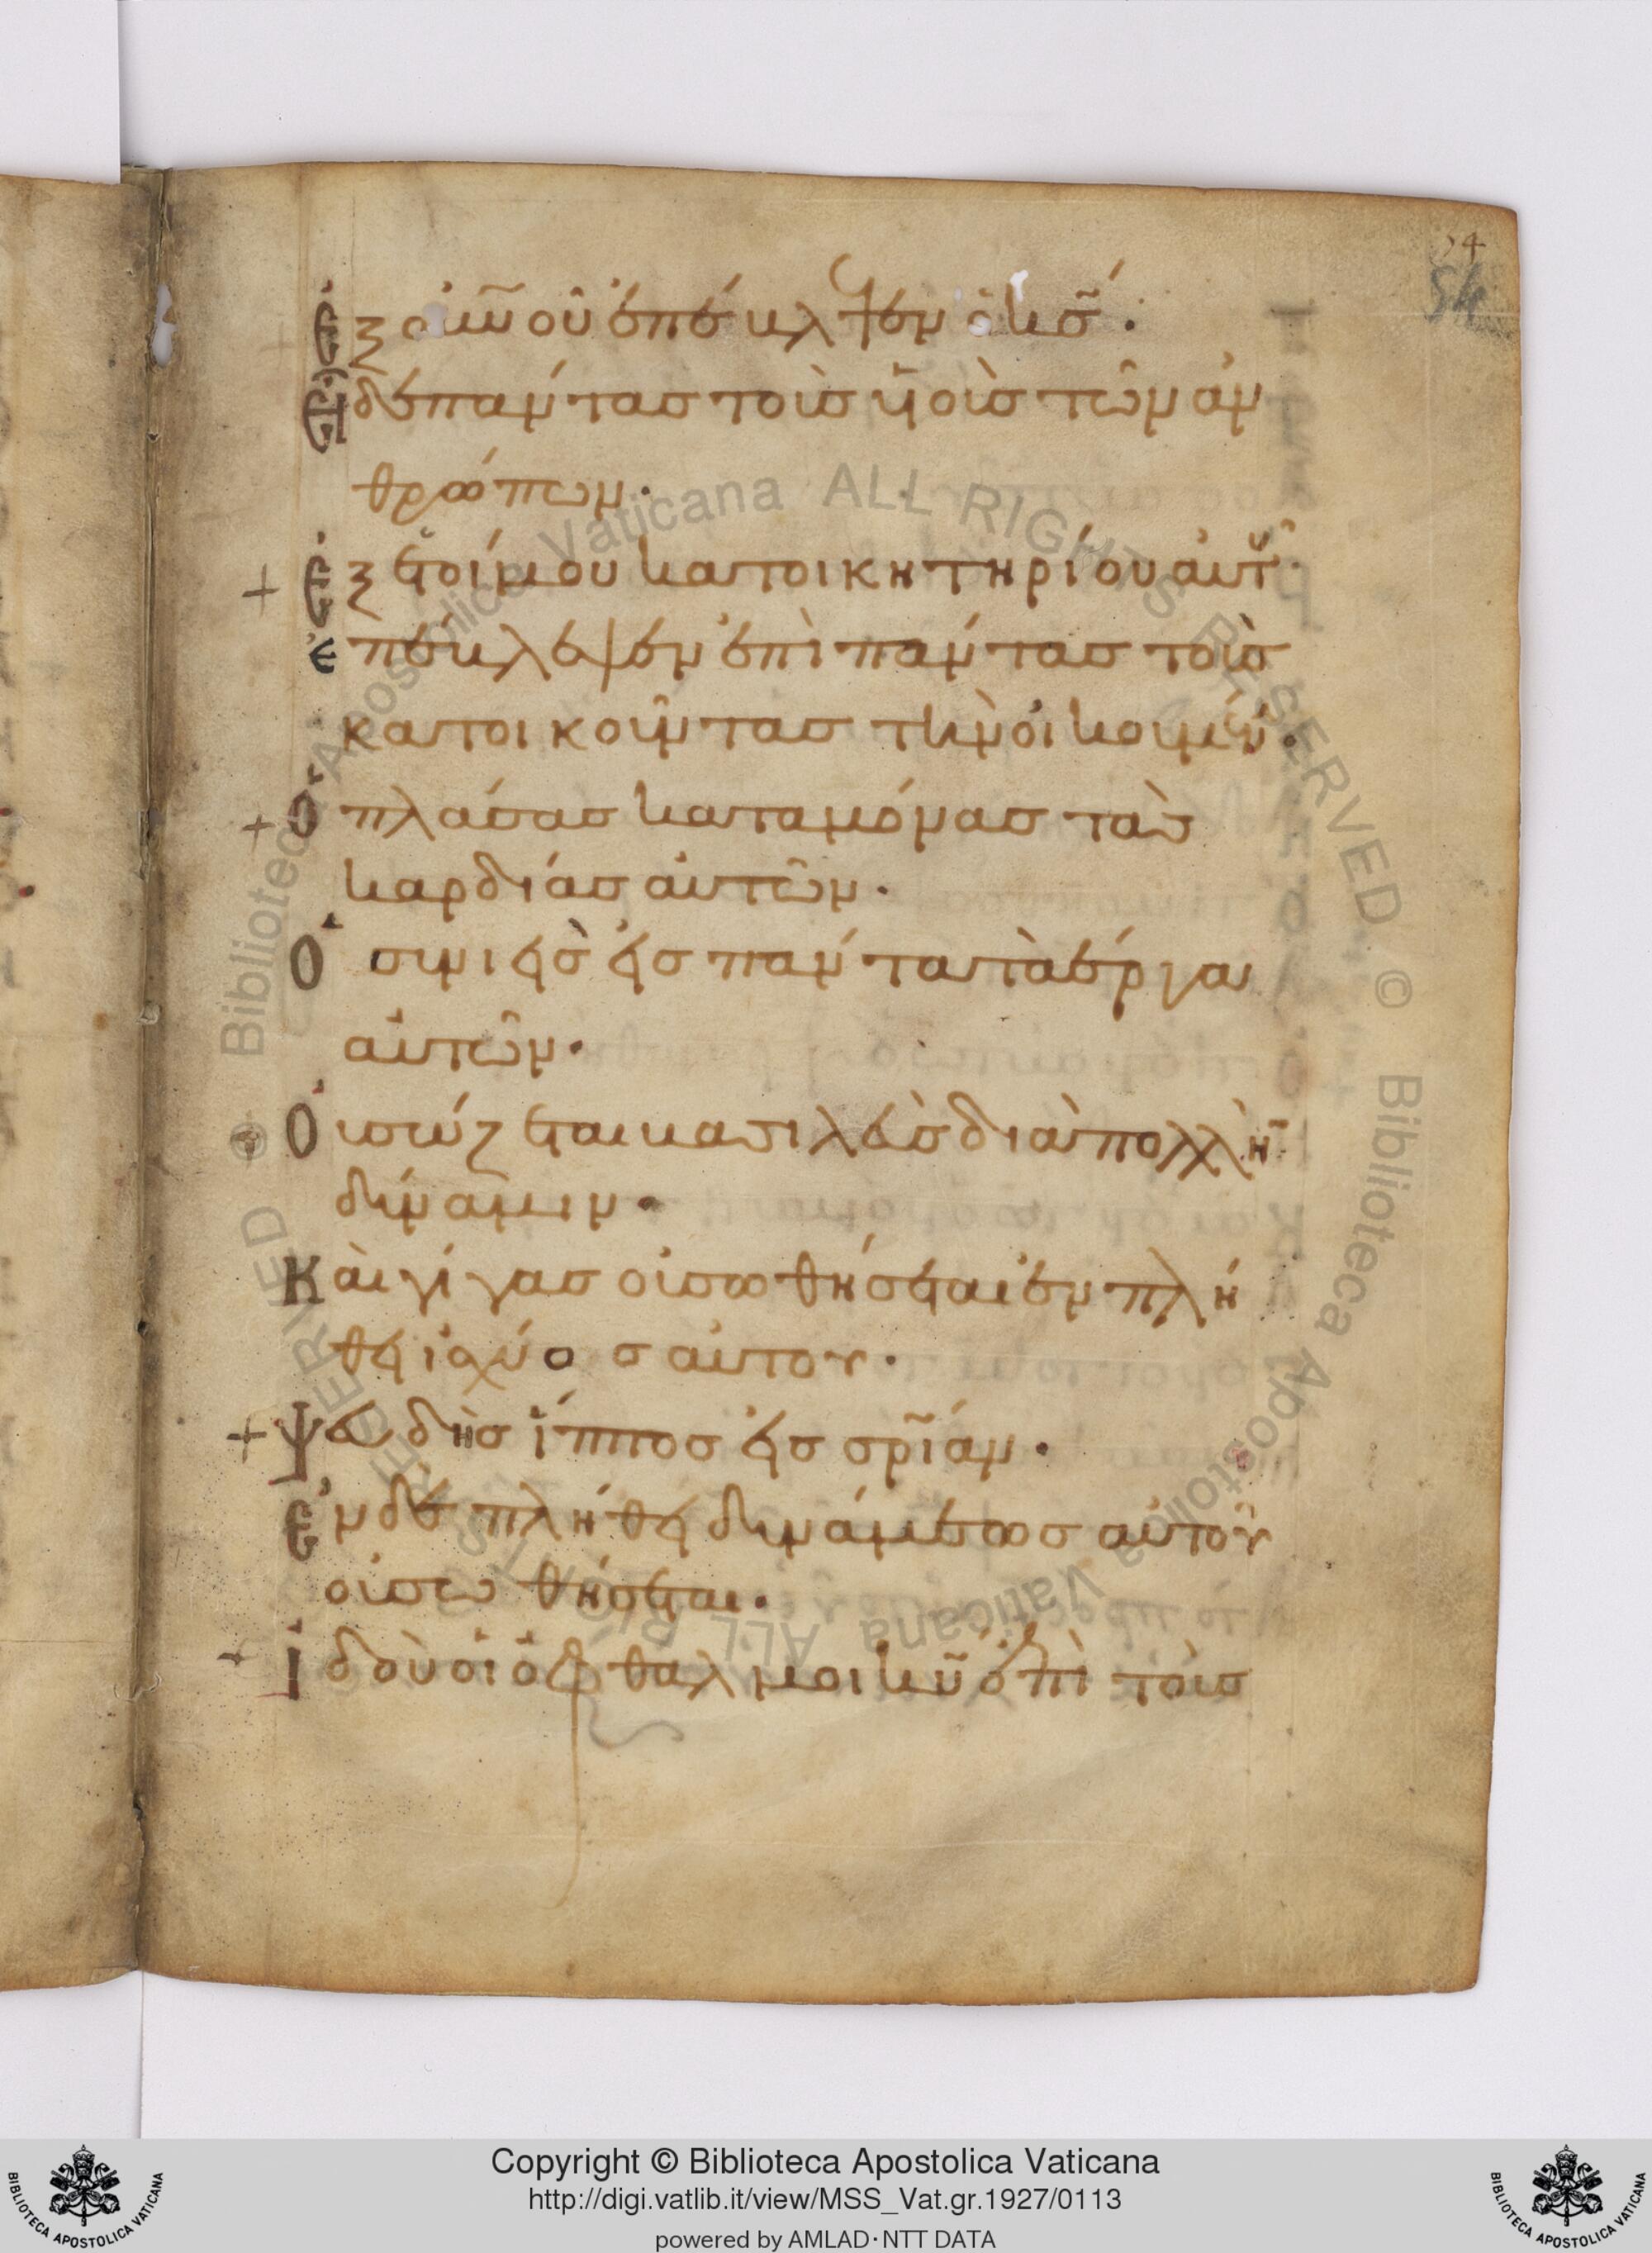 54
Ἐξ οὐ̅νοῦ ἐπέβλεψεν ὁ κ̅σ̅.
Εἶδε πάντας τοὺς υ̅ἱοὺς τῶν ἀν
θρώπων.
+ Ἐξ ἑτοίμου κατοικητηρίου αὐτοῦ
ἐπέβλεψεν ἐπὶ πάντας τοὺς
κατοικοῦντας τὴν οἰκουμένην.
+ Ὁ πλάσας καταμόνας τὰς
καρδίας αὐτῶν.
Ὁ συνιεὶς εἰς πάντα τὰ ἔργα
αὐτῶν.
Οὐ σώζεται βασιλεὺς διὰ πολλὴν
δύναμιν.
Καὶ γίγας οὐ σωθήσεται ἐν πλή
θει ἰσχύος αὐτοῦ.
+ Ψευδὴς ἵππος εἰς σ̅ρ̅ίαν.
Ἐν δὲ πλήθει δυνάμεως αὐτοῦ
οὐ σωθήσεται.
+ Ἰδοὺ οἱ ὀφθαλμοὶ κ̅υ̅ ἐπὶ τοὺς
Copyright © Biblioteca Apostolica Vaticana
http://digi.vatlib.it/view/MSS_Vat.gr.1927/0113
powered by AMLAD·NTT DATA
BIBLIOTECA APOSTOLICA VATICANA
BIBLIOTECA APOSTOLICA VATICANA
Biblioteca Apostolica Vaticana ALL RIGHTS RESERVED © Biblioteca Apostolica Vaticana ALL RIGHTS RESERVED ©